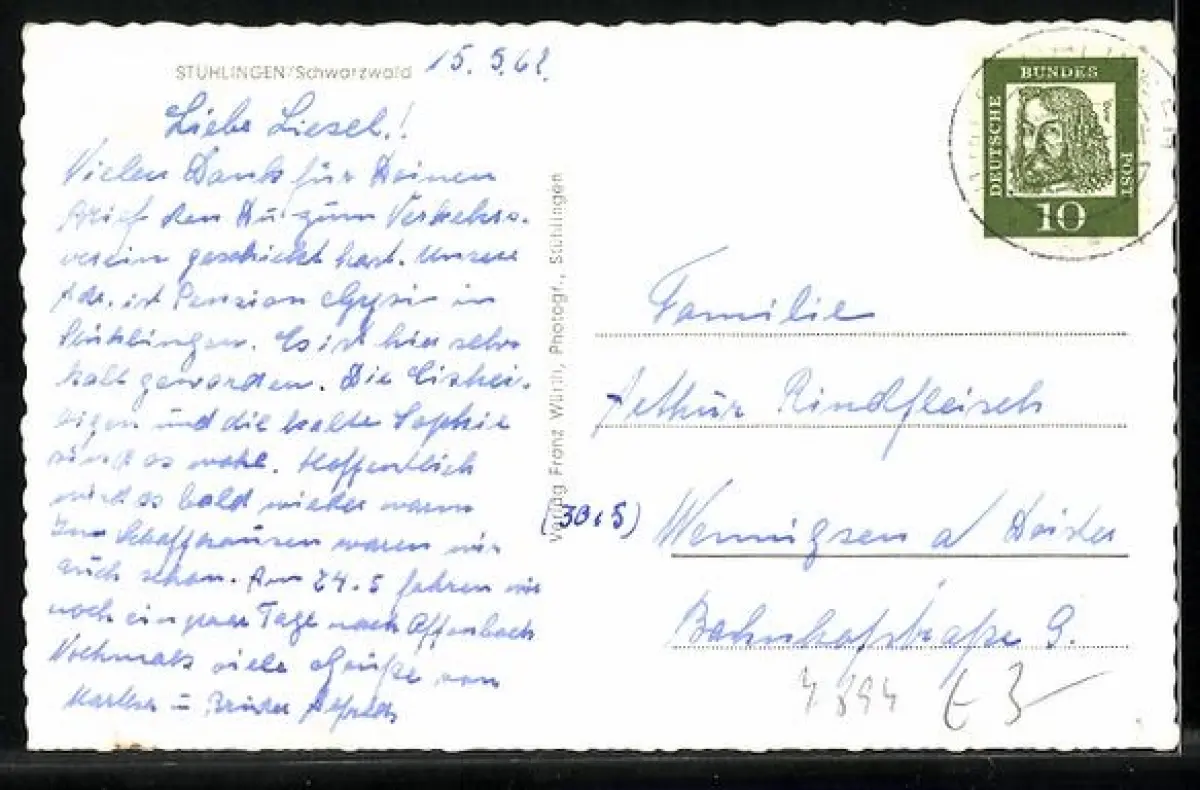 STÜHLINGEN/Schwarzwald 15.5.62.
Liebe Liesel!
Vielen Dank für Deinen
Brief den Du zum Verkehrs-
verein geschickt hast. Unsere
Adr. ist Pension in
Stühlingen. Es ist hier sehr
kalt geworden. Die Eishei-
ligen und die kalte Sophie
sind es wohl. Hoffentlich
wird es bald wieder warm
In Schaffhausen waren wir
auch schon. Am 24.5 fahren wir
noch ein paar Tage nach Offenbach
Nochmals viele Grüße von
u. Bruder Alfred
Verlag Franz Würth, Photogr., Stühlingen
DEUTSCHE BUNDES POST
10
Familie
Arthur Rindfleisch
(3015) Wennigsen a/ Deister
Bahnhofstraße 9.